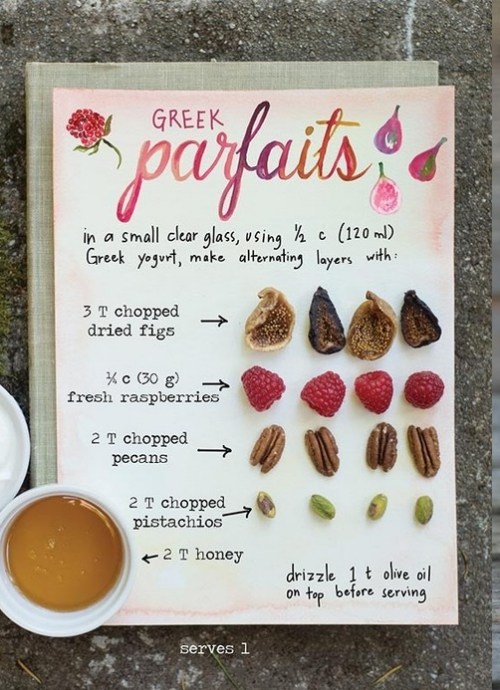 GREEK
parfaits
in a small clear glass, using ½ c (120 ml)
Greek yogurt, make alternating layers with:
3 T chopped
dried figs
¼ c (30 g)
fresh raspberries
2 T chopped
pecans
2 T chopped
pistachios
2 T honey
drizzle 1 t olive oil
on top before serving
serves 1